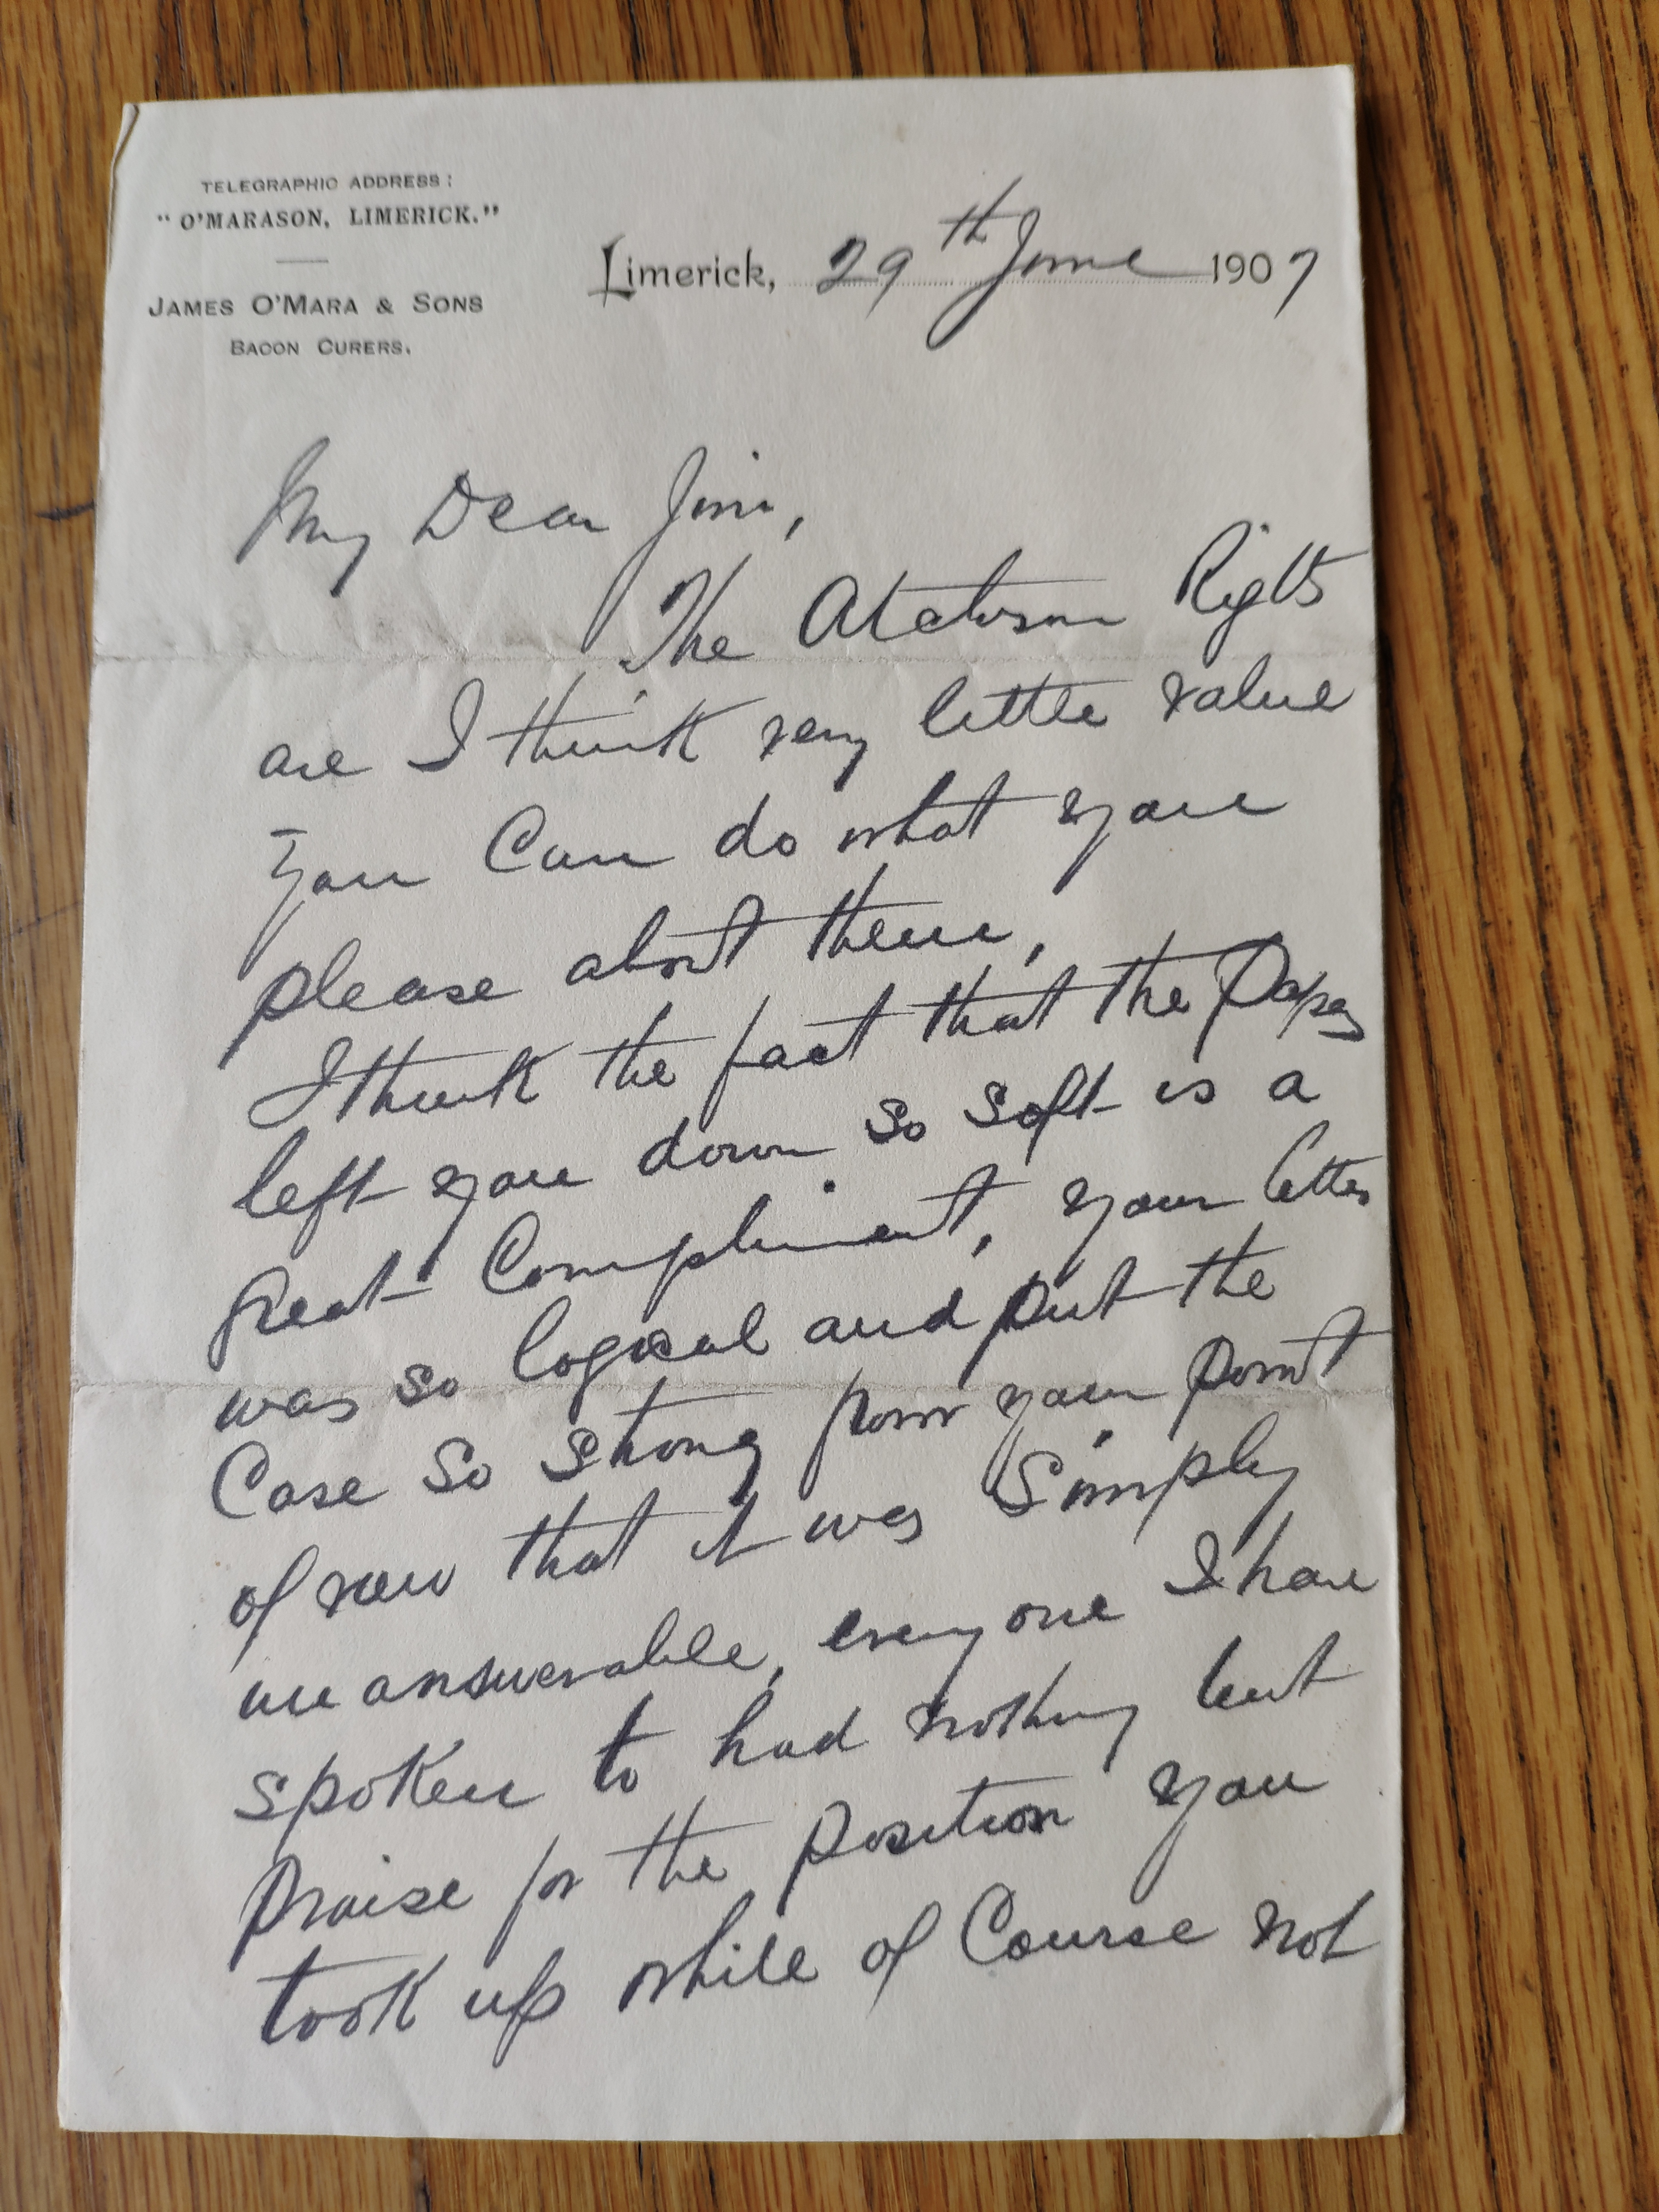 TELEGRAPHIC ADDRESS:
"O'MARASON, LIMERICK."
JAMES O'MARA & SONS
BACON CURERS.
Limerick, 29th June 1907
My Dear Jim,
The Atchison Rights
are I think very little value
you can do what you
please about them,
I think the fact that the Papers
left you down so soft is a
great Compliment, your letter
was so logical and put the
Case so strong from your point
of view that it was simply
unanswerable, everyone I have
spoken to had nothing but
praise for the position you
took up while of Course not